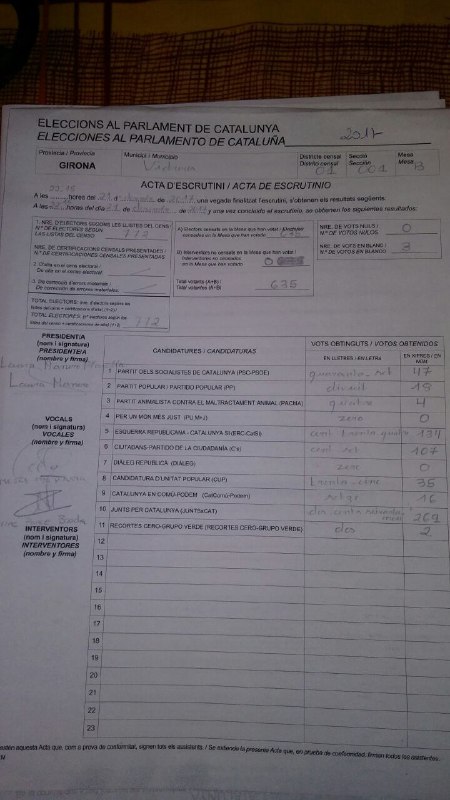 ELECCIONS AL PARLAMENT DE CATALUNYA
ELECCIONES AL PARLAMENTO DE CATALUÑA
2017
Província / Provincia
GIRONA
Municipi / Municipio
Districte censal
Distrito censal
01
Secció
Sección
001
Mesa
Mesa
B
ACTA D'ESCRUTINI / ACTA DE ESCRUTINIO
A les hores del 21 de de 2017, una vegada finalitzat l'escrutini, s'obtenen els resultats següents:
A las horas del día 21 de de y una vez concluido el escrutinio, se obtienen los siguientes resultados:
1. NRE. D'ELECTORS SEGONS LES LLISTES DEL CENS
N.º DE ELECTORES SEGÚN
LAS LISTAS DEL CENSO
NRE. DE CERTIFICACIONS CENSALS PRESENTADES /
N.º DE CERTIFICACIONES CENSALES PRESENTADAS
TOTAL ELECTORS:
TOTAL ELECTORES:
712
A) Electors censats en la Mesa que han votat / Electores
censados en la Mesa que han votado
B) Interventors no censats en la Mesa que han votat /
Interventores no censados
en la Mesa que han votado
0
Total votants (A+B) /
Total votantes (A+B)
635
NRE. DE VOTS NULS /
N.º DE VOTOS NULOS
0
NRE. DE VOTS EN BLANC /
N.º DE VOTOS EN BLANCO
3
PRESIDENT/A
(nom i signatura)
PRESIDENTE/A
(nombre y firma)
VOCALS
(nom i signatura)
VOCALES
(nombre y firma)
INTERVENTORS
(nom i signatura)
INTERVENTORES
(nombre y firma)
CANDIDATURES / CANDIDATURAS
VOTS OBTINGUTS / VOTOS OBTENIDOS
EN LLETRES / EN LETRA
EN XIFRES / EN NÚM.
1 PARTIT DELS SOCIALISTES DE CATALUNYA (PSC-PSOE) quaranta-set 47
2 PARTIT POPULAR / PARTIDO POPULAR (PP) 19
3 PARTIT ANIMALISTA CONTRA EL MALTRACTAMENT ANIMAL (PACMA) quatre 4
4 PER UN MÓN MÉS JUST (PUM+J) zero 0
5 ESQUERRA REPUBLICANA - CATALUNYA SÍ (ERC-CatSí) cent trenta quatre 134
6 CIUTADANS-PARTIDO DE LA CIUDADANÍA (C's) cent set 107
7 DIÀLEG REPUBLICÀ (DIÀLEG) zero 0
8 CANDIDATURA D'UNITAT POPULAR (CUP) trenta-cinc 35
9 CATALUNYA EN COMÚ-PODEM (CatComú-Podem) setze 16
10 JUNTS PER CATALUNYA (JUNTSxCAT) 269
11 RECORTES CERO-GRUPO VERDE (RECORTES CERO-GRUPO VERDE) dos 2
12
13
14
15
16
17
18
19
20
21
22
23
aquesta Acta que, com a prova de conformitat, signen tots els assistents. / Se extiende la presente Acta que, en prueba de conformidad, firman todos los asistentes.